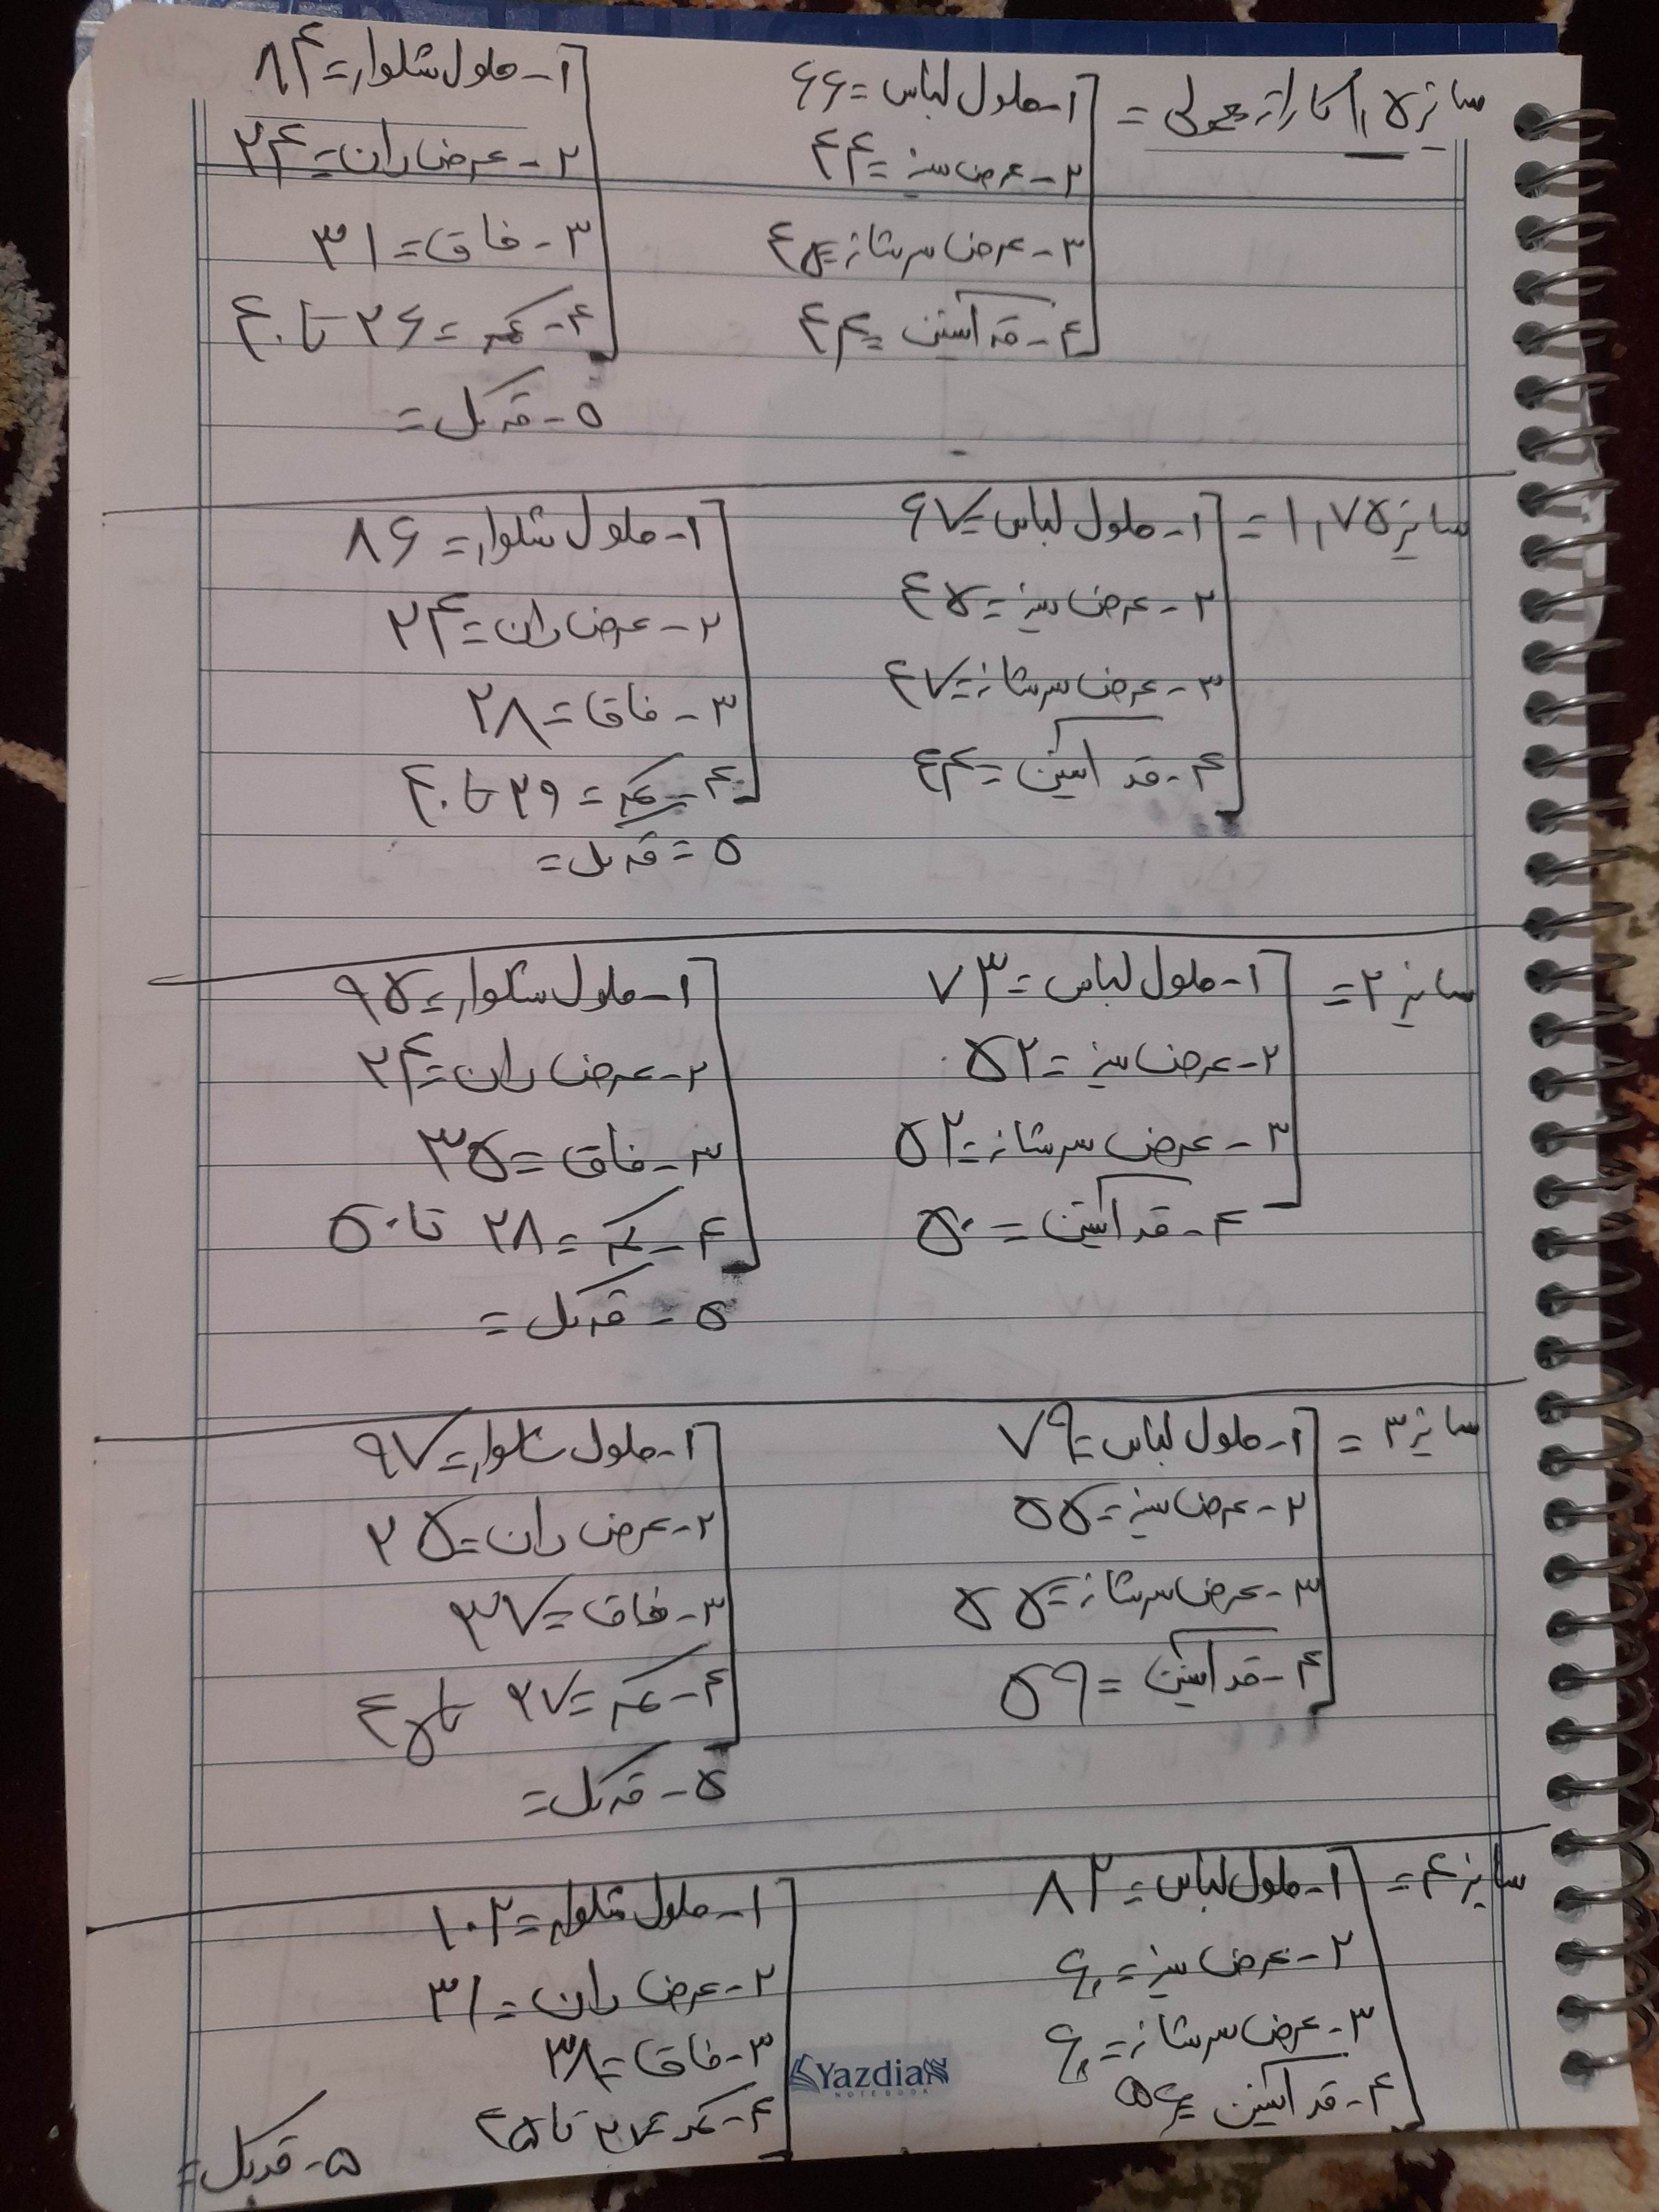 سایز ۱,۵ کاراته معمولی =
۱- طول لباس = ۶۶
۲- عرض سینه = ۴۴
۳- عرض سرشانه = ۴۵
۴- قد آستین = ۴۴
۱- طول شلوار = ۸۴
۲- عرض ران = ۲۴
۳- فاق = ۳۱
۴- کمر = ۲۶ تا ۴۰
۵- قد کل =
سایز ۱,۷۵ =
۱- طول لباس = ۶۷
۲- عرض سینه = ۴۵
۳- عرض سرشانه = ۴۷
۴- قد آستین = ۴۴
۱- طول شلوار = ۸۶
۲- عرض ران = ۲۴
۳- فاق = ۲۸
۴- کمر = ۲۹ تا ۴۰
۵ = قد کل =
سایز ۲ =
۱- طول لباس = ۷۳
۲- عرض سینه = ۵۲
۳- عرض سرشانه = ۵۲
۴- قد آستین = ۵۰
۱- طول شلوار = ۹۵
۲- عرض ران = ۲۴
۳- فاق = ۳۵
۴- کمر = ۲۸ تا ۵۰
۵ - قد کل =
سایز ۳ =
۱- طول لباس = ۷۹
۲- عرض سینه = ۵۵
۳- عرض سرشانه = ۵۵
۴- قد آستین = ۵۹
۱- طول شلوار = ۹۷
۲- عرض ران = ۲۵
۳- فاق = ۳۷
۴- کمر = ۲۷ تا ۴۵
۵- قد کل =
سایز ۴ =
۱- طول لباس = ۸۲
۲- عرض سینه = ۶۰
۳- عرض سرشانه = ۶۰
۴- قد آستین =
۱- طول شلوار = ۱۰۲
۲- عرض ران = ۳۱
۳- فاق = ۳۸
۴- کمر تا ۴۵
۵- قد کل =
Yazdian
NOTEBOOK